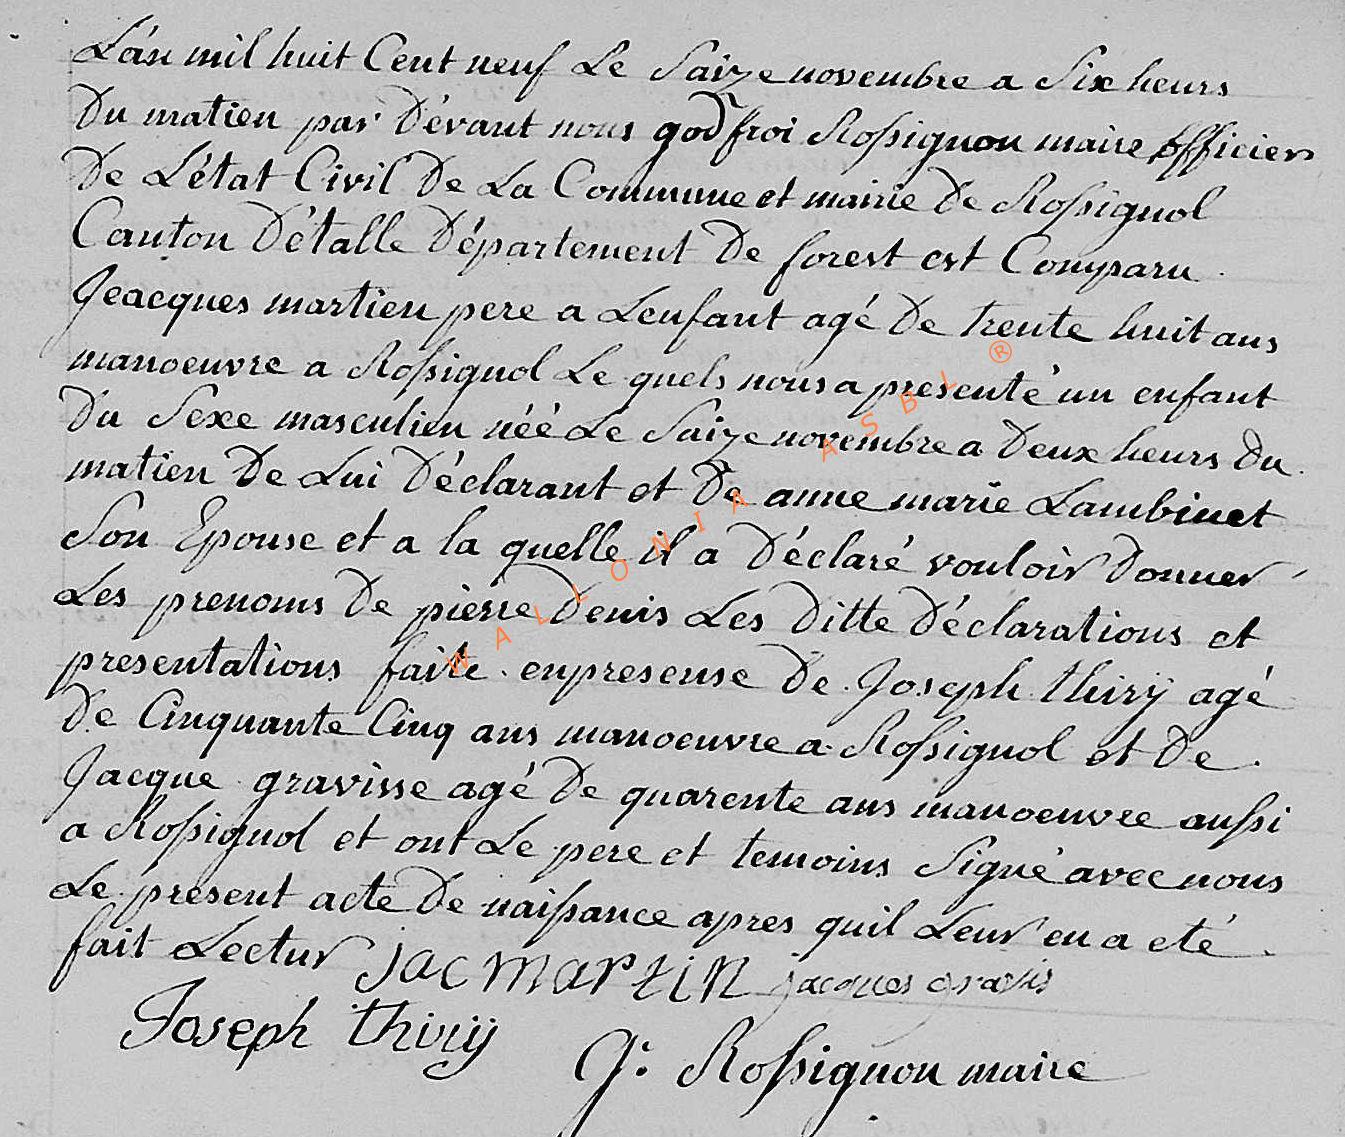 L'án mil huit Cent neuf Le Saize novembre a Six heurs
Du matien par Dévant nous godfroi Rossignon maire officier
De L'état Civil De La Commune et mairie De Rossignol
Canton D'étalle Département De forest est Comparu
Jeacques martien pere a Lenfant agé De trente huit ans
manoeuvre a Rossignol Le quels nous a presenté un enfant
Du Sexe masculien néé Le Saize novembre a Deux heurs Du
matien De Lui Déclarant et De anne marie Lambinet
Son Epouse et a la quelle il a Déclaré vouloir Donner
Les prenoms De pierre Denis Les Ditte Déclarations et
presentations faite enpresense De Joseph thirÿ agé
De Cinquante Cinq ans manoeuvre a Rossignol et De
Jacque gravisse agé De quarente ans manoeuvre aussi
a Rossignol et ont Le pere et temoins Signé avec nous
Le present acte De naissance apres quil Leur en a eté
fait Lectur jac martin jacques gravis
Joseph thirÿ
G. Rossignon maire
WALLONIA ASBL ®